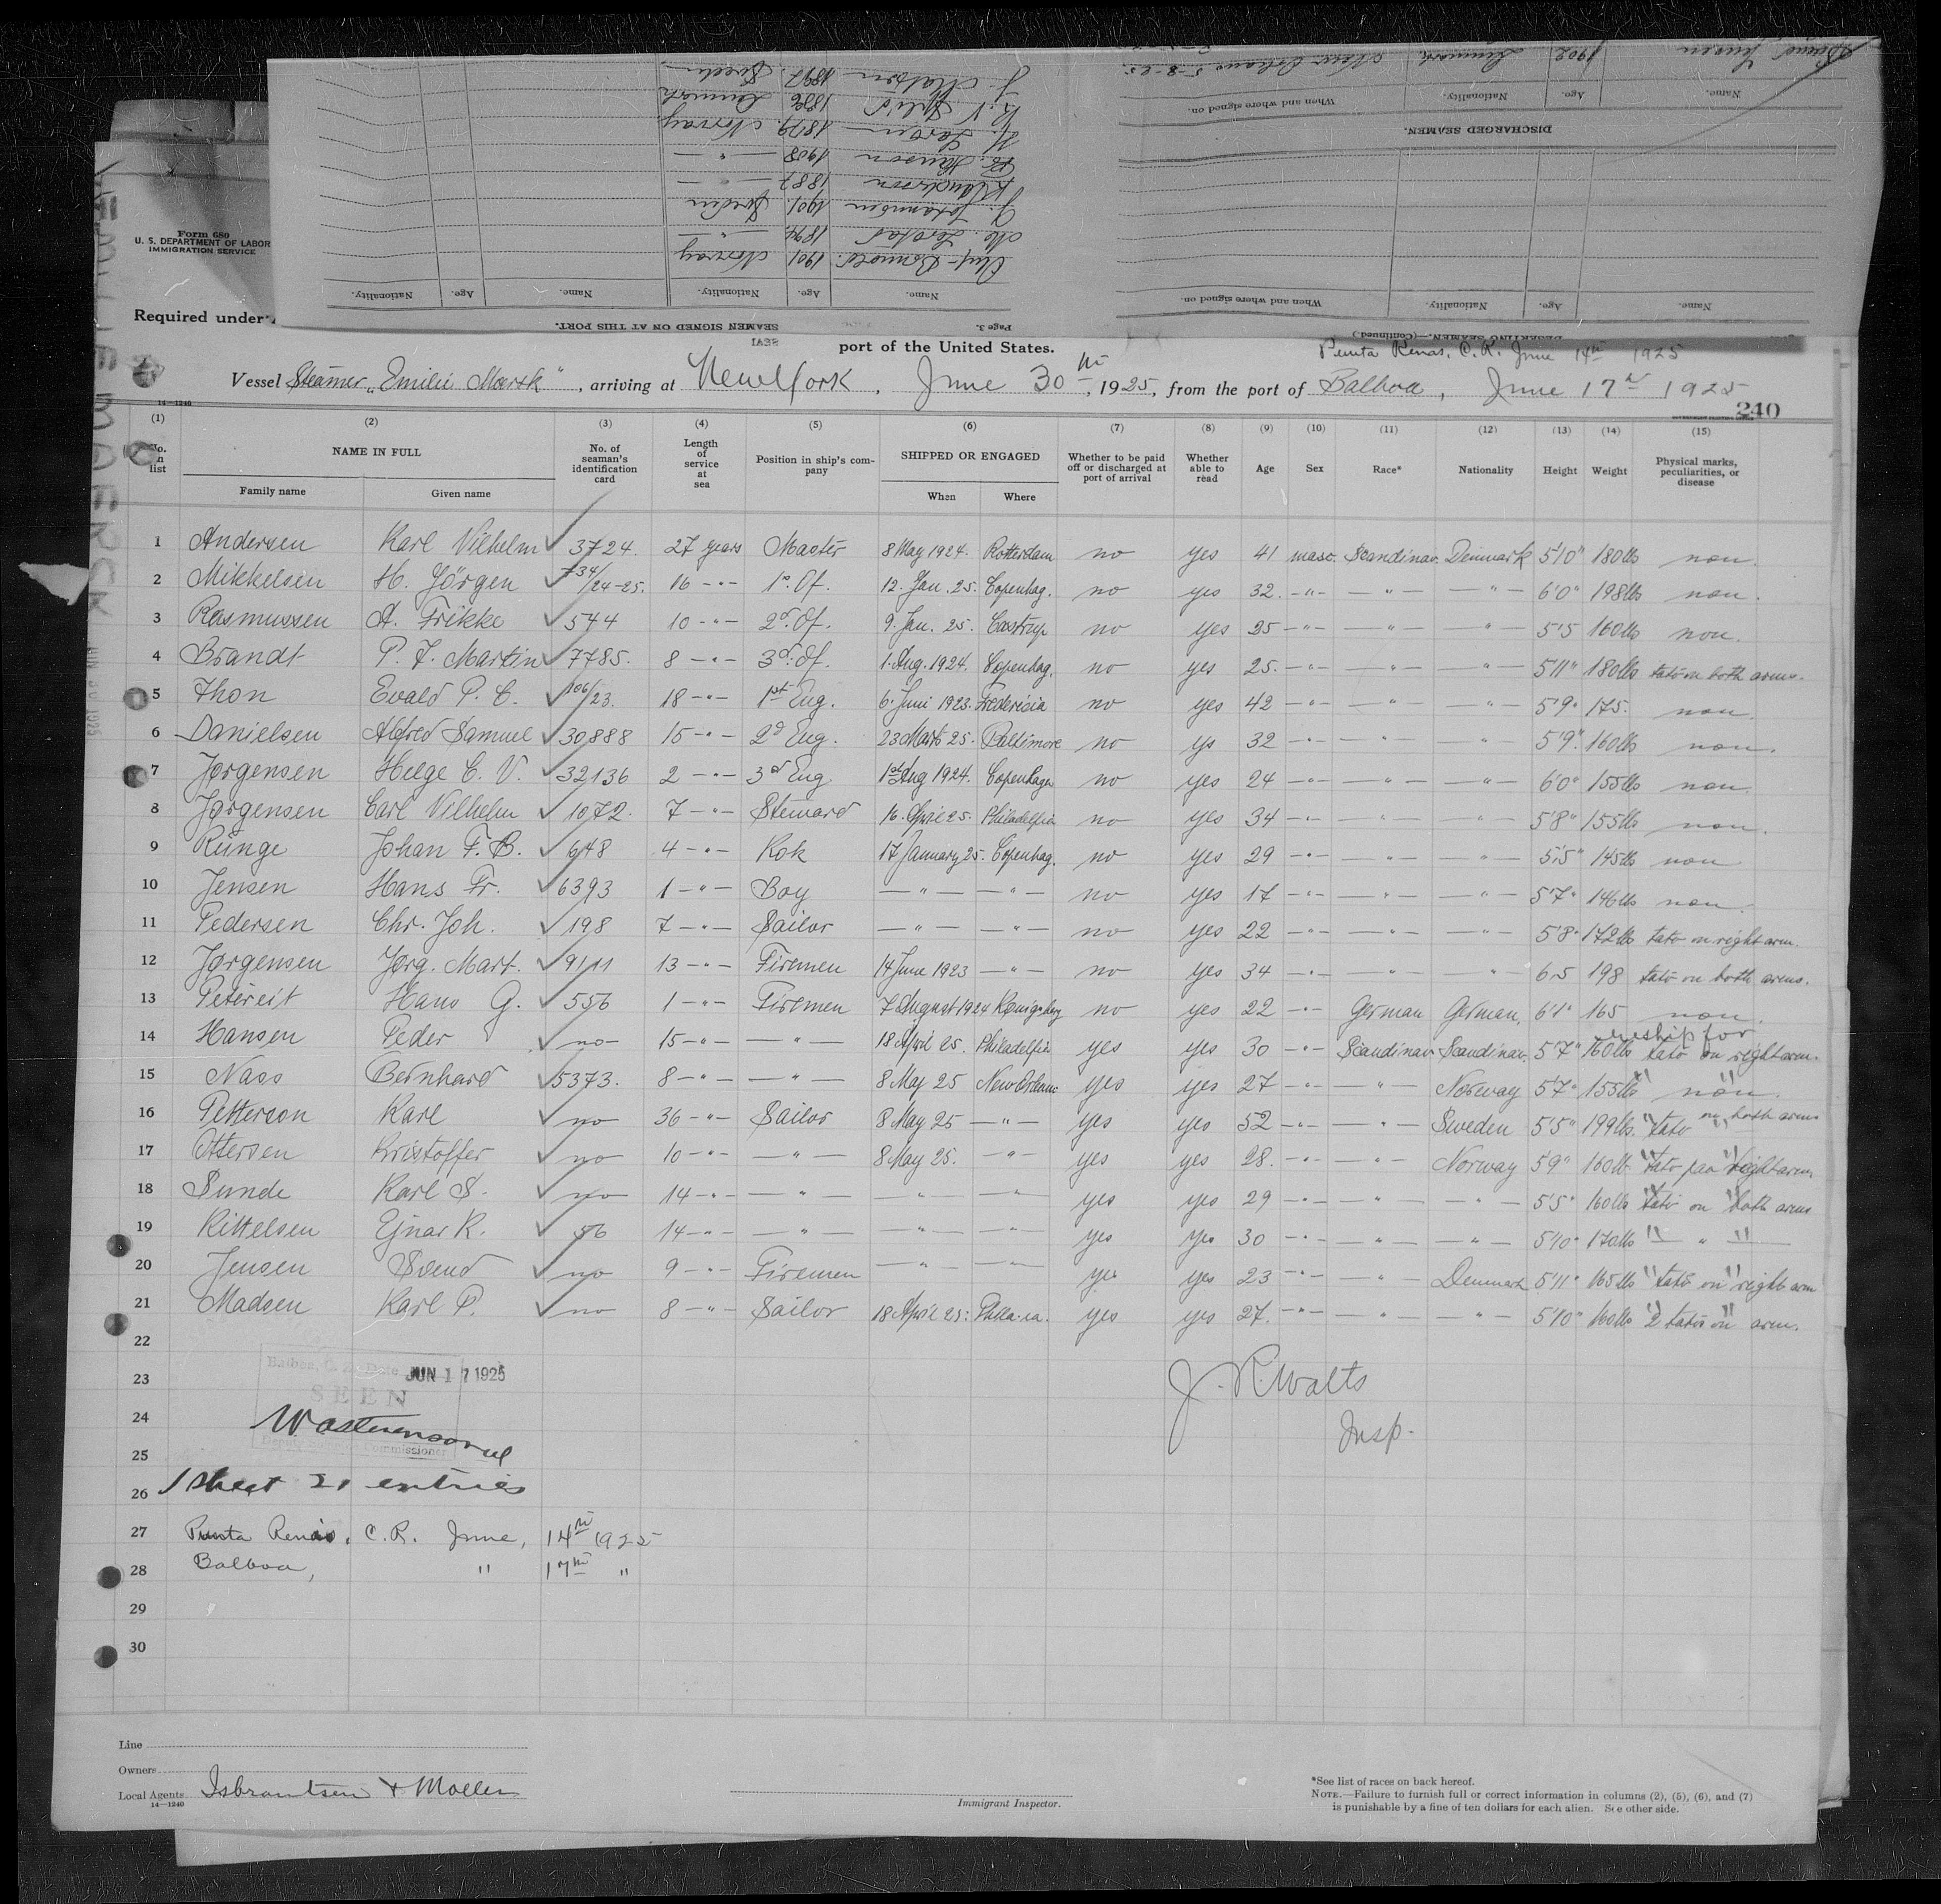 Form 680
U. S. DEPARTMENT OF LABOR
IMMIGRATION SERVICE
Required under
Page 3.
SEAMEN SIGNED ON AT THIS PORT.
Name. Age. Nationality. Name. Age. Nationality.
1901 Norway
1894 — " —
J. Johannsen 1901 Sweden
1887 — " —
Hanson 1908 — " —
Larsen 1879 Norway
1886 Denmark
J. Matson 1897 Sweden
DEPARTING SEAMEN.—(Continued.)
Name. Age. Nationality. When and where signed on.
DISCHARGED SEAMEN.
Name. Age. Nationality. When and where signed on.
Svend Jensen 1902 Denmark New Orleans 5-8-25.
port of the United States.
Punta Renas, C. R. June 14th 1925
Vessel Steamer "Emilie Mærsk", arriving at New York, June 30th, 1925, from the port of Balboa, June 17th 1925
14—1240
240
(1) (2) (3) (4) (5) (6) (7) (8) (9) (10) (11) (12) (13) (14) (15)
No. in list
NAME IN FULL
Family name Given name
No. of seaman's identification card
Length of service at sea
Position in ship's company
SHIPPED OR ENGAGED
When Where
Whether to be paid off or discharged at port of arrival
Whether able to read
Age
Sex
Race*
Nationality
Height
Weight
Physical marks, peculiarities, or disease
1 Andersen Karl Vilhelm 3724. 27 years Master 8 May 1924. Rotterdam no yes 41 masc. Scandinav. Denmark 5'10" 180lbs non.
2 Mikkelsen H. Jörgen 734/24-25. 16 — " — 1º. Of. 12. Jan. 25. Copenhag. no yes 32. — " — — " — — " — 6'0" 198lbs non.
3 Rasmussen A. Frikke 544 10 — " — 2d. Of. 9. Jan. 25. Castrup no yes 25 — " — — " — — " — 5'5 160lbs non.
4 Brandt P. F. Martin 7785. 8 — " — 3d. Of. 1. Aug. 1924. Copenhag. no yes 25. — " — — " — — " — 5'11" 180lbs tato on both arms.
5 Thon Evald P. C. 106/23. 18 — " — 1st Eng. 6. Juni 1923. Fredericia no yes 42 — " — — " — — " — 5'9" 175. non.
6 Danielsen Alfred Samuel 30888 15 — " — 2d Eng. 23 Marts 25. Baltimore no ys 32 — " — — " — " 5'9". 160lbs non.
7 Jørgensen Helge C. V. 32136 2 — " — 3d Eng 1st Aug 1924. Copenhagen no yes 24 — " — — " — — " — 6'0" 155lbs non.
8 Jørgensen Carl Vilhelm 1072. 7 — " — Steward 16. April 25. Philadelfia no yes 34 — " — — " — — " — 5'8" 155lbs non.
9 Runge Johan F. B. 648 4 — " — Kok 17 January 25. Copenhag. no yes 29 — " — — " — — " — 5'5" 145lbs non
10 Jensen Hans Fr. 6393 1 — " — Boy — " — — " — no yes 17 — " — — " — — " — 5'7" 146lbs non.
11 Pedersen Chr. Joh. 198 7 — " — Sailor — " — — " — no yes 22 — " — — " — — " — 5'8" 172lbs tato on right arm.
12 Jørgensen Jørg. Mart. 9111 13 — " — Firemen 14 June 1923 — " — no yes 34 — " — — " — — " — 6'5 198 tato on both arms.
13 Petereit Hans G. 556 1 — " — Firemen 7 August 1924 Kønigsberg no yes 22 — " — German German. 6'1" 165 non.
reship for
14 Hansen Peder no 15 — " — — " — 18 April 25. Philadelfia yes yes 30 — " — Scandinav Scandinav. 5'7" 160lbs tato on right arm.
15 Nass Bernhard 5373. 8 — " — — " — 8 May 25 New Orleans yes yes 27 — " — — " — Norway 5'7" 155lbs " non. "
16 Petterson Karl no 36 — " — Sailor 8 May 25 — " — yes yes 52 — " — — " — Sweden 5'5" 199lbs. " tato on both arms
17 Ottersen Kristoffer no 10 — " — — " — 8 May 25. — " — yes yes 28. — " — — " — Norway 5'9" 160lb " tato paa right arm.
18 Sunde Karl S. no 14 — " — — " — — " — — " — yes yes 29 — " — — " — — " — 5'5" 160lbs " tato on both arms
19 Kittelsen Ejnar K. 56 14 — " — — " — — " — — " — yes yes 30 — " — — " — — " — 5'10" 170lbs " — " — "
20 Jensen Svend no 9 — " — Firemen — " — — " — yes yes 23 — " — — " — Denmark 5'11" 165lbs " tato on right arm
21 Madsen Karl P. no 8 — " — Sailor 18 April 25: Phila.ia. yes yes 27. — " — — " — — " — 5'10" 160lbs " 2 tatos on arm.
22
23 Balboa, C. Z. Date JUN 17 1925
SEEN
J. R. Walts
Insp.
24
Commissioner
25
26 1 Sheet 21 entries
27 Punta Renas, C. R. June, 14th 1925
28 Balboa, " 17th "
29
30
Line
Owners
Local Agents Isbrantsen & Moller
14—1240
Immigrant Inspector.
*See list of races on back hereof.
NOTE.—Failure to furnish full or correct information in columns (2), (5), (6), and (7)
is punishable by a fine of ten dollars for each alien. See other side.